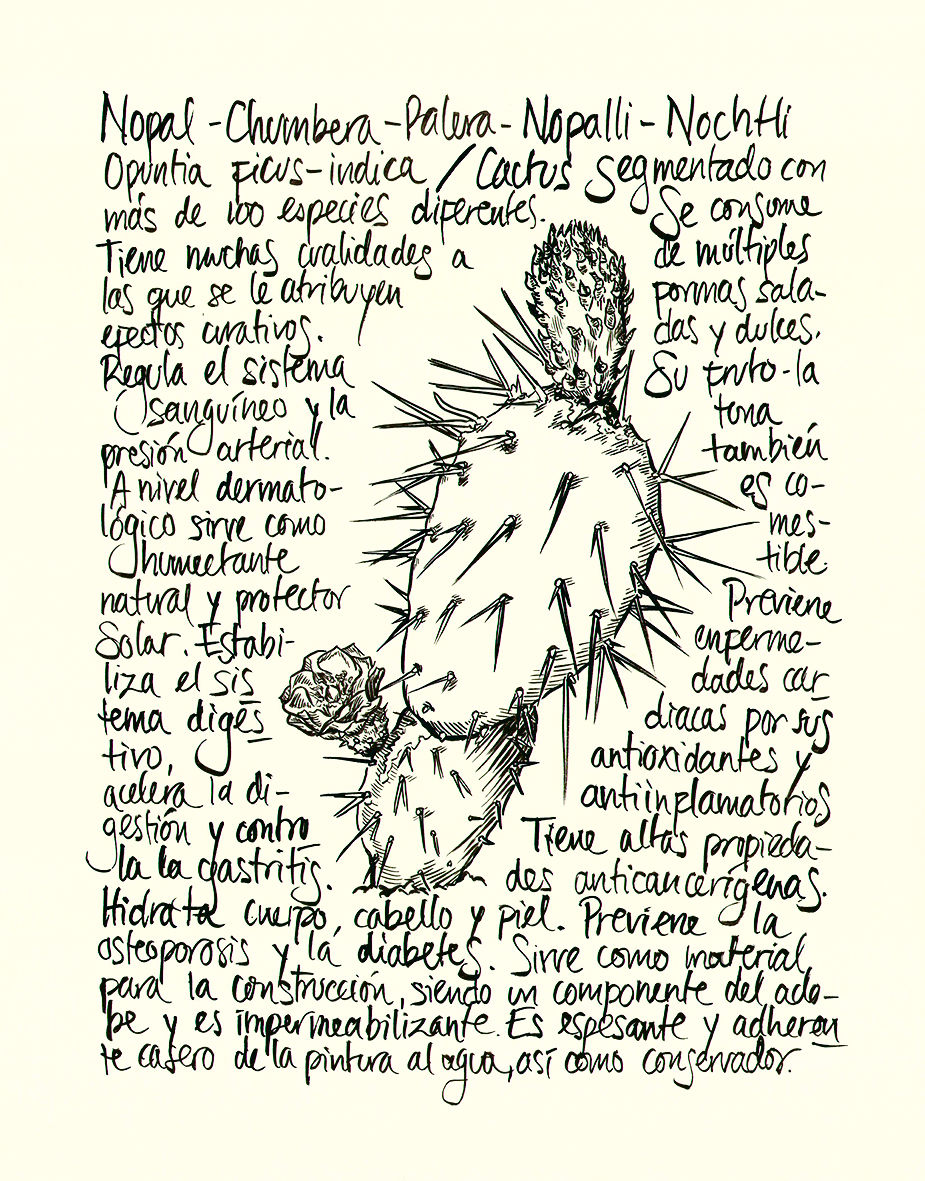 Nopal - Chumbera - Palera - Nopalli - Nochtli
Opuntia ficus-indica / Cactus segmentado con
más de 100 especies diferentes.
Tiene muchas cualidades a
las que se le atribuyen
efectos curativos.
Regula el sistema
sanguíneo y la
presión arterial.
A nivel dermato-
lógico sirve como
humectante
natural y protector
Solar. Estabi-
liza el sis
tema diges
tivo,
acelera la di-
gestión y contro
la la gastritis.
Se consume
de múltiples
formas sala-
das y dulces.
Su fruto - la
tuna
también
es co-
mes-
tible.
Previene
enferme-
dades car
diacas por sus
antioxidantes y
antiinflamatorios
Tiene altas propieda-
des anticancerígenas.
Hidrata cuerpo, cabello y piel. Previene la
osteoporosis y la diabetes. Sirve como material
para la construcción, siendo un componente del ado-
be y es impermeabilizante. Es espesante y adheren
te casero de la pintura al agua, así como conservador.